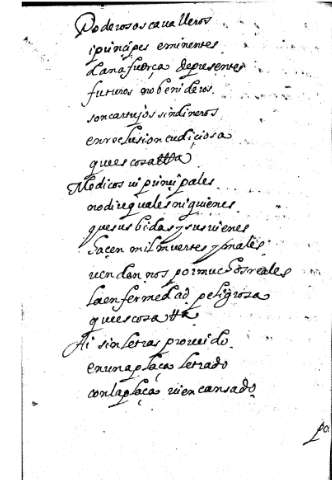 Poderosos cavalleros
i principes eminentes
dana fuerça de presentes
futuros no benideros
son cartujos sin dineros
en reclusion cudiçiosa
que es cosa &a
Medicos ui prinçipales
no dire quales ni quienes
que sus bidas y sus vienes
haçen mil muertes y males
uendannos por muchos reales
la enfermedad peligrosa
que es cosa &a
Ai sin letras proueido
en una plaça letrado
con la plaça vien cansado